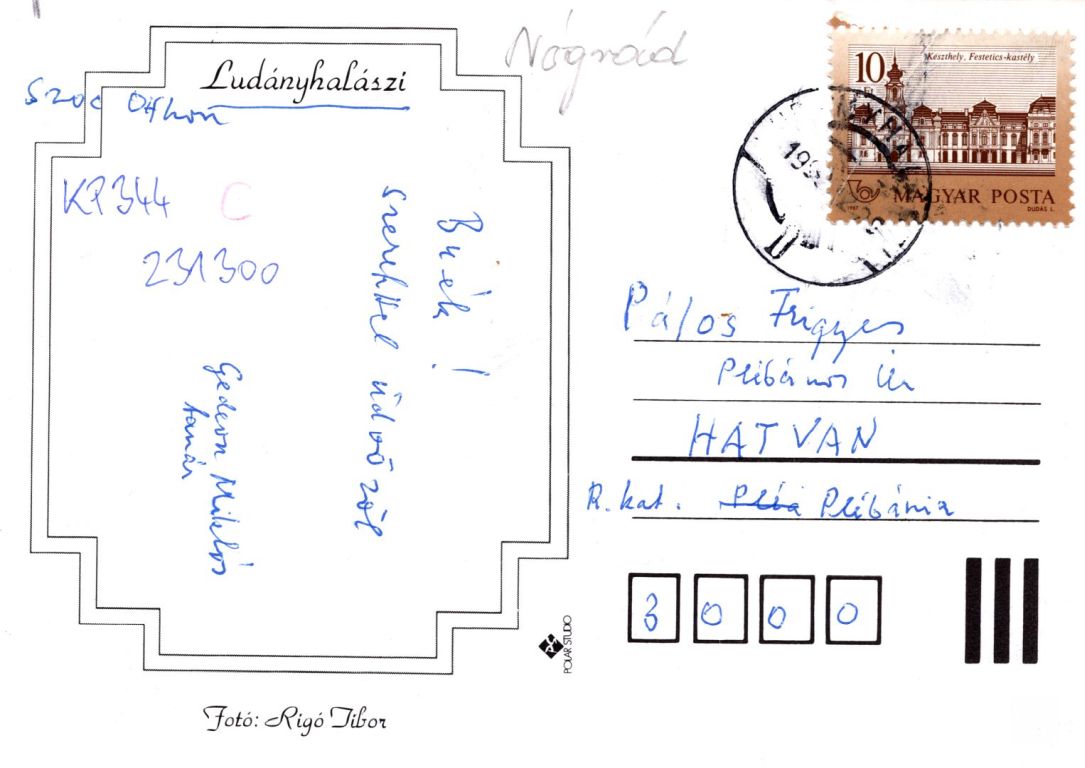 Nógrád
Ludányhalászi
Szoc Otthon
KP344 C
231300
Buék!
Szeretettel üdvözöl
Gedeon Miklós
tanár
10
Keszthely, Festetics-kastély
MAGYAR POSTA
1987
DUDÁS L.
Pálos Frigyes
Plébános Úr
HATVAN
R. kat. Pléba Plébánia
3000
POLAR STUDIO
Fotó: Rigó Tibor